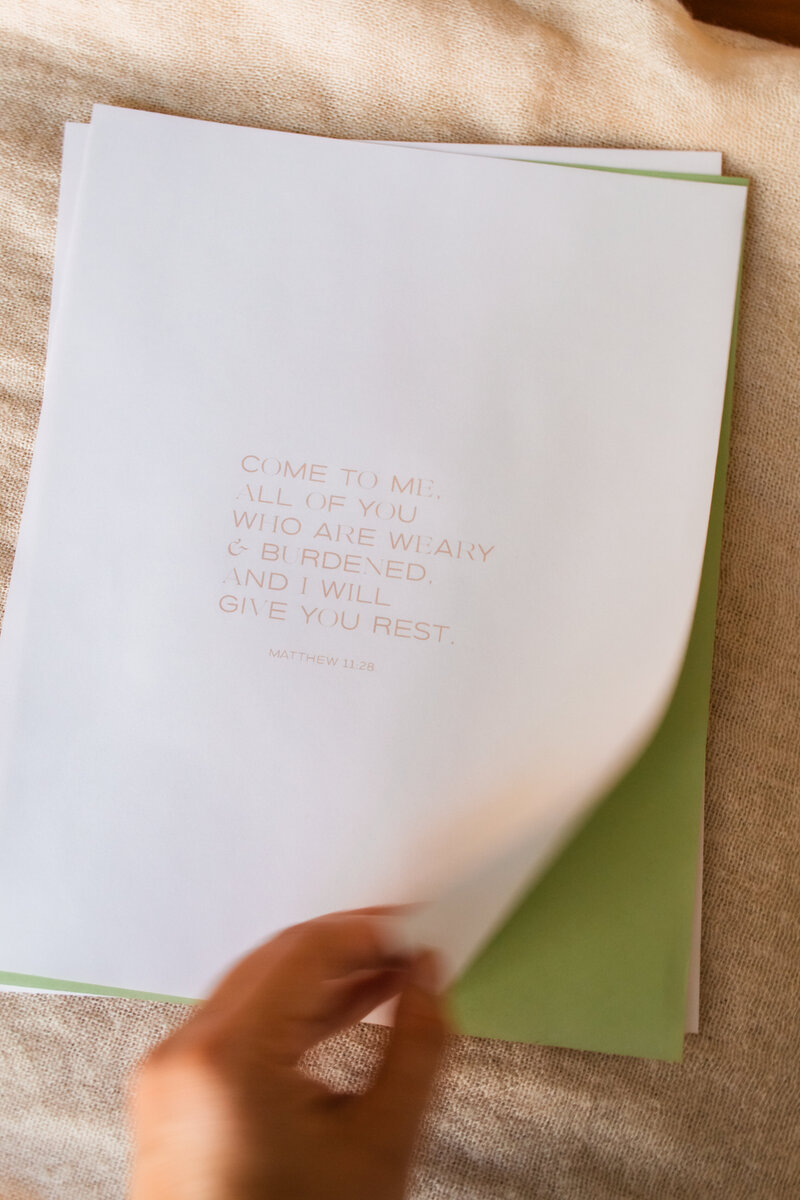 COME TO ME,
ALL OF YOU
WHO ARE WEARY
& BURDENED,
AND I WILL
GIVE YOU REST.
MATTHEW 11:28